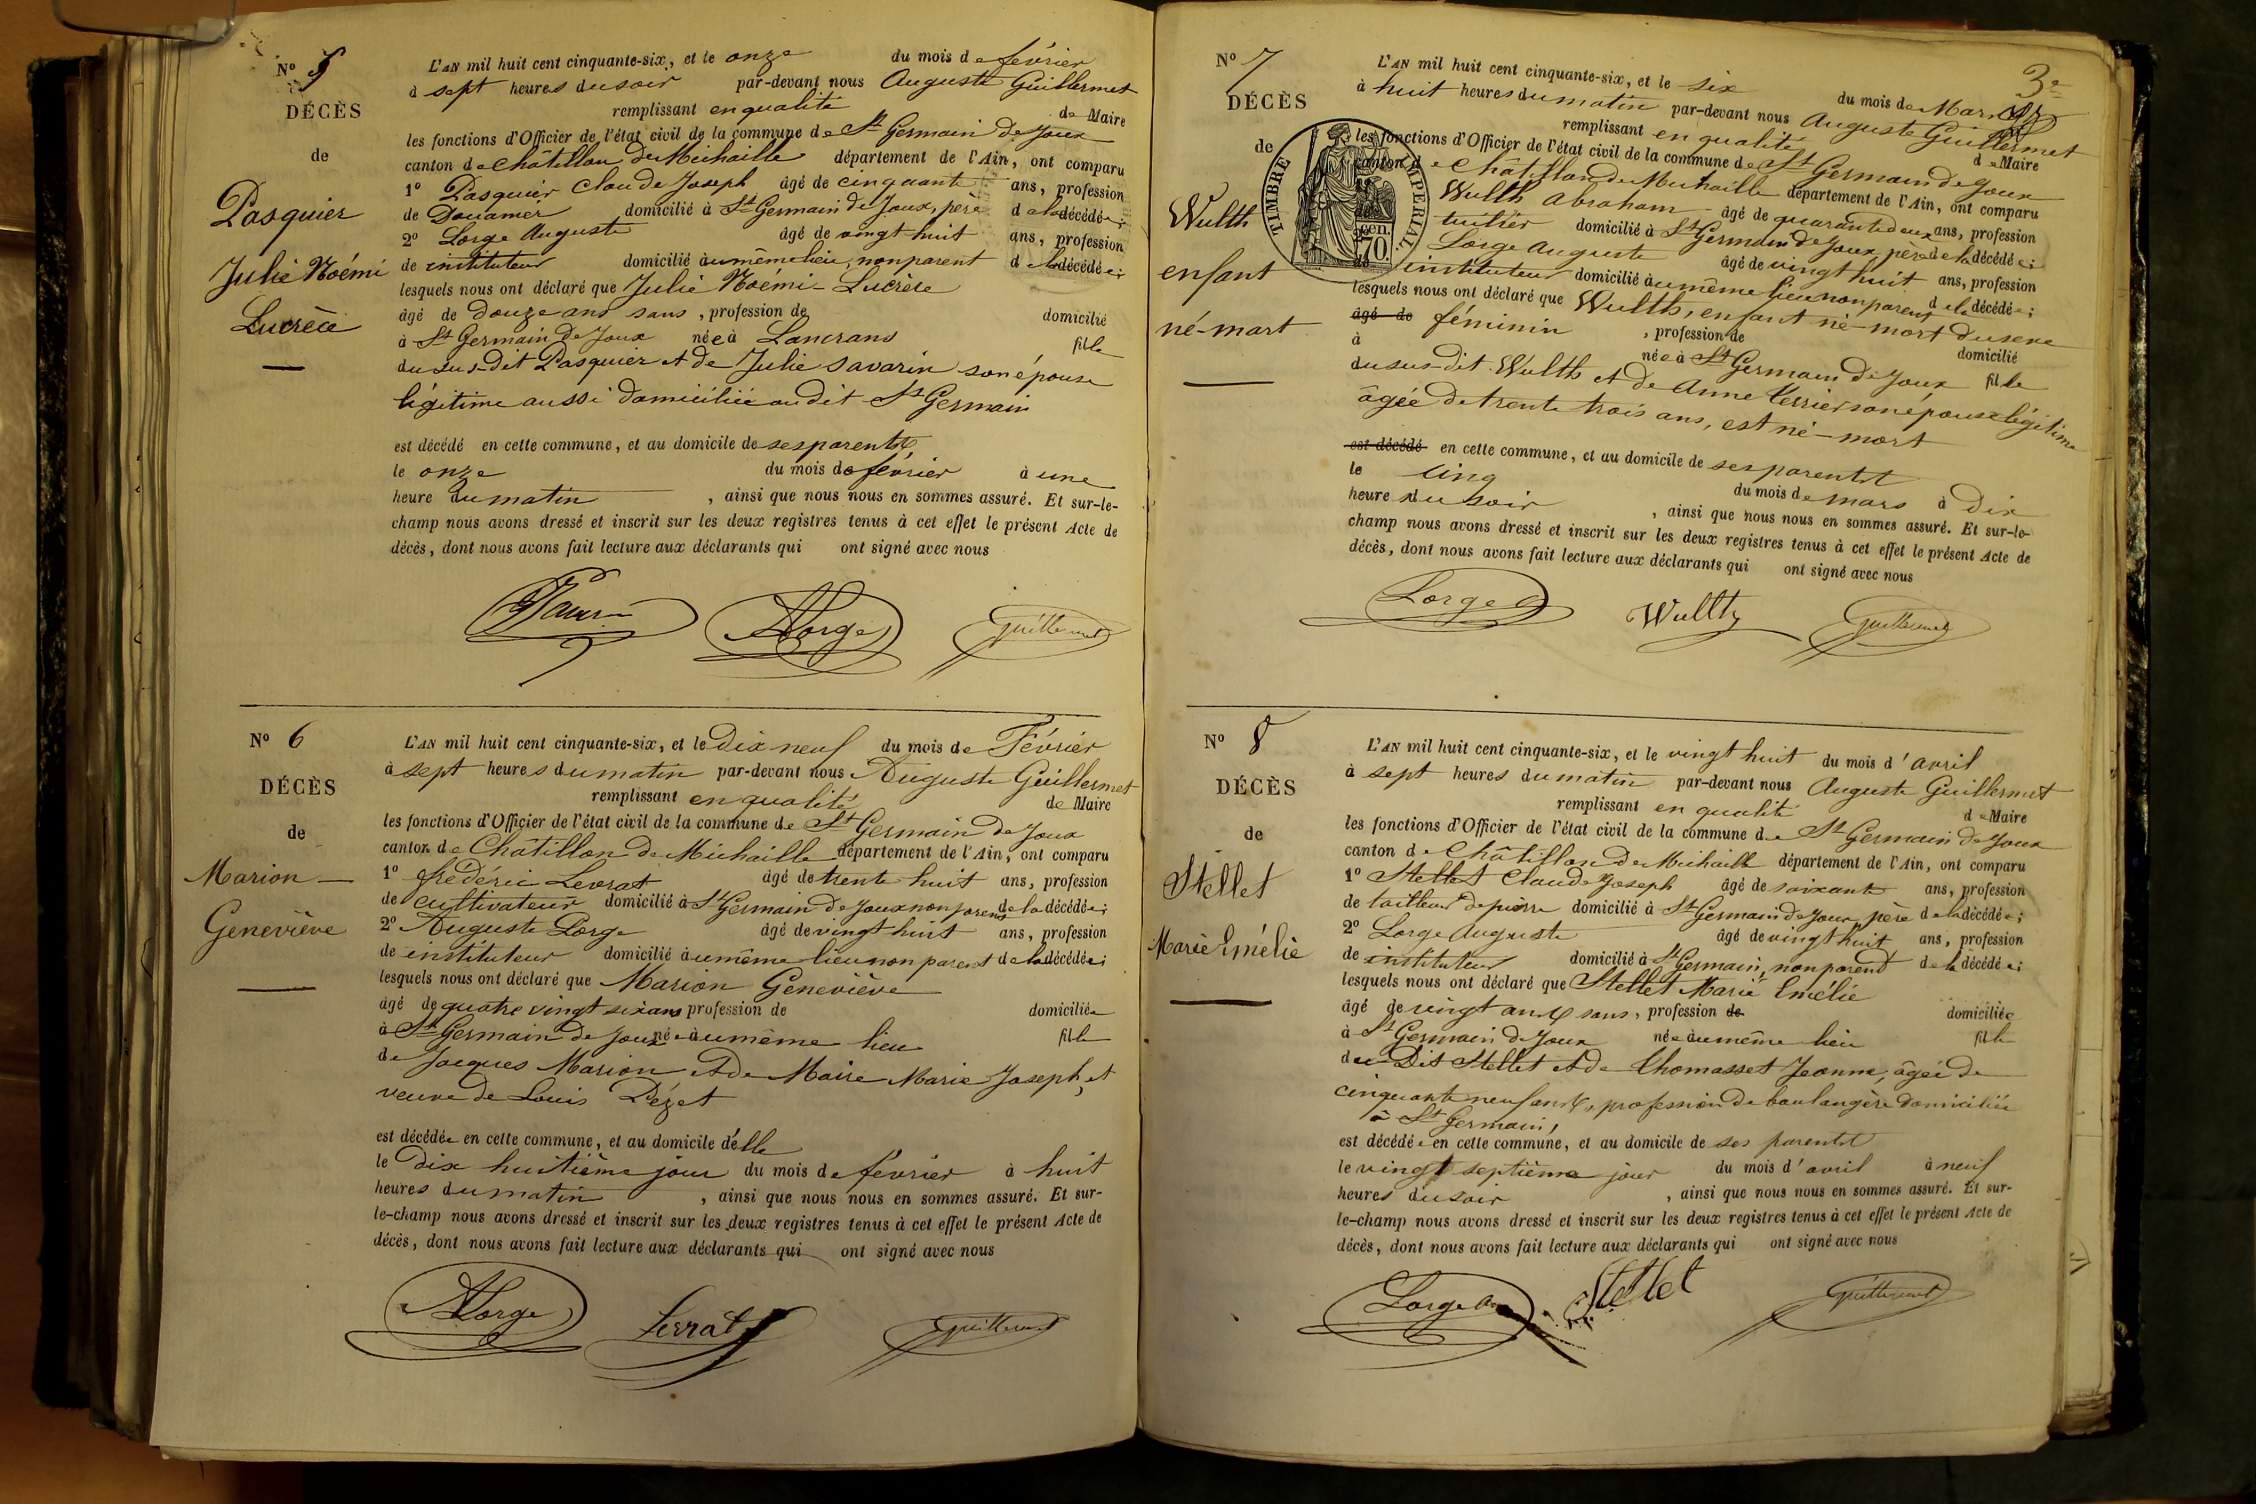 N° 5
DÉCÈS
de
Pasquier
Julie Noémi
Lucrèce
L'AN mil huit cent cinquante-six, et le onze du mois de février
à sept heures du soir par-devant nous Auguste Guillermet
remplissant en qualité de Maire
les fonctions d'Officier de l'état civil de la commune de St Germain de Joux
canton de Châtillon de Michaille département de l'Ain, ont comparu
1° Pasquier Claude Joseph âgé de cinquante ans, profession
de Douanier domicilié à St Germain de Joux, père de la décédée;
2° Lorge Auguste âgé de vingt huit ans, profession
de instituteur domicilié au même lieu, non parent de la décédée;
lesquels nous ont déclaré que Julie Noémi-Lucrèce
âgé de douze ans sans, profession de domicilié
à St Germain de Joux née à Lancrans fille
du sus-dit Pasquier et de Julie Savarin son épouse
légitime aussi domiciliée au dit St Germain
est décédé en cette commune, et au domicile de ses parents
le onze du mois de février à une
heure du matin, ainsi que nous nous en sommes assuré. Et sur-le-
champ nous avons dressé et inscrit sur les deux registres tenus à cet effet le présent Acte de
décès, dont nous avons fait lecture aux déclarants qui ont signé avec nous
ALorge Guillermet
N° 6
DÉCÈS
de
Marion
Geneviève
L'AN mil huit cent cinquante-six, et le Dix neuf du mois de Février
à sept heures du matin par-devant nous Auguste Guillermet
remplissant en qualité de Maire
les fonctions d'Officier de l'état civil de la commune de St Germain de Joux
canton de Châtillon de Michaille département de l'Ain, ont comparu
1° frédéric Levrat âgé de trente huit ans, profession
de cultivateur domicilié à St Germain de Joux non parent de la décédée;
2° Auguste Lorge âgé de vingt huit ans, profession
de instituteur domicilié au même lieu non parent de la décédée;
lesquels nous ont déclaré que Marion Geneviève
âgé de quatre vingt six ans profession de domiciliée
à St Germain de Joux née au même lieu fille
de Jacques Marion et de Maire Marie Joseph, et
veuve de Louis Pézet
est décédée en cette commune, et au domicile d'elle
le Dix huitième jour du mois de février à huit
heures du matin, ainsi que nous nous en sommes assuré. Et sur-
le-champ nous avons dressé et inscrit sur les deux registres tenus à cet effet le présent Acte de
décès, dont nous avons fait lecture aux déclarants qui ont signé avec nous
ALorge Levrat Guillermet
3e
N° 7
DÉCÈS
de
Wulth
enfant
né-mort
TIMBRE IMPERIAL
cen. 70.
L'AN mil huit cent cinquante-six, et le six du mois de Mars
à huit heures du matin par-devant nous Auguste Guillermet
remplissant en qualité de Maire
les fonctions d'Officier de l'état civil de la commune de St Germain de Joux
canton de Châtillon de Michaille département de l'Ain, ont comparu
Wulth Abraham âgé de quarante deux ans, profession
tuilier domicilié à St Germain de Joux, père de la décédée;
Lorge Auguste âgé de vingt huit ans, profession
de instituteur domicilié au même lieu non parent de la décédée;
lesquels nous ont déclaré que Wulth, enfant né-mort du sexe
âgé de féminin, profession de domicilié
à née à St Germain de Joux fille
du sus-dit Wulth et de Anne Verrier son épouse légitime
âgée de trente trois ans, est né-mort
est décédé en cette commune, et au domicile de ses parents
le cinq du mois de mars à Dix
heures du soir, ainsi que nous nous en sommes assuré. Et sur-le-
champ nous avons dressé et inscrit sur les deux registres tenus à cet effet le présent Acte de
décès, dont nous avons fait lecture aux déclarants qui ont signé avec nous
Lorge Wullth Guillermet
N° 8
DÉCÈS
de
Stellet
Marie Emélie
L'AN mil huit cent cinquante-six, et le vingt huit du mois d'avril
à sept heures du matin par-devant nous Auguste Guillermet
remplissant en qualité de Maire
les fonctions d'Officier de l'état civil de la commune de St Germain de Joux
canton de Châtillon de Michaille département de l'Ain, ont comparu
1° Stellet Claude Joseph âgé de soixante ans, profession
de tailleur de pierre domicilié à St Germain de Joux, père de la décédée;
2° Lorge Auguste âgé de vingt huit ans, profession
de instituteur domicilié à St Germain, non parent de la décédée;
lesquels nous ont déclaré que Stellet Marie Emélie
âgé de vingt ans sans, profession de domiciliée
à St Germain de Joux née au même lieu fille
du Dit Stellet et de Chomasset Jeanne, âgée de
cinquante neuf ans, profession de boulangère domiciliée
à St Germain,
est décédée en cette commune, et au domicile de ses parents
le vingt septième jour du mois d'avril à neuf
heures du soir, ainsi que nous nous en sommes assuré. Et sur-
le-champ nous avons dressé et inscrit sur les deux registres tenus à cet effet le présent Acte de
décès, dont nous avons fait lecture aux déclarants qui ont signé avec nous
Lorge Stellet Guillermet